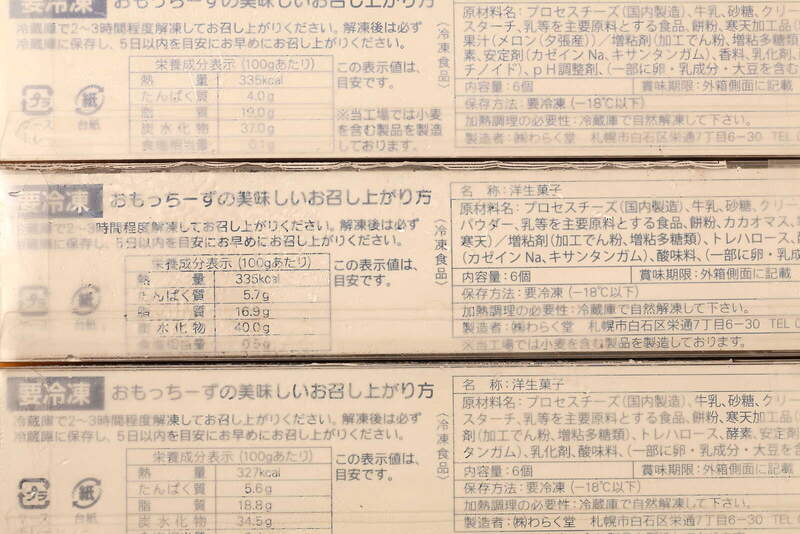 要冷凍
おもっちーずの美味しいお召し上がり方
冷蔵庫で2～3時間程度解凍してお召し上がりください。解凍後は必ず
冷蔵庫に保存し、5日以内を目安にお早めにお召し上がりください。
栄養成分表示(100gあたり)
熱 量 335kcal
たんぱく質 4.0g
脂 質 19.0g
炭水化物 37.0g
食塩相当量 0.1g
この表示値は、
目安です。
※当工場では小麦
を含む製品を製造
しております。
プラ
ケース
トレー
紙
台紙
〈冷凍食品〉
原材料名：プロセスチーズ(国内製造)、牛乳、砂糖、クリー
スターチ、乳等を主要原料とする食品、餅粉、寒天加工品(
果汁(メロン(夕張産))／増粘剤(加工でん粉、増粘多糖類
素、安定剤(カゼインNa、キサンタンガム)、香料、乳化剤、
チノイド)、pH調整剤、(一部に卵・乳成分・大豆を含む
内容量：6個 賞味期限：外箱側面に記載
保存方法：要冷凍(−18℃以下)
加熱調理の必要性：冷蔵庫で自然解凍して下さい。
製造者：㈱わらく堂 札幌市白石区栄通7丁目6-30 TEL
要冷凍
おもっちーずの美味しいお召し上がり方
冷蔵庫で2～3時間程度解凍してお召し上がりください。解凍後は必ず
冷蔵庫に保存し、5日以内を目安にお早めにお召し上がりください。
栄養成分表示(100gあたり)
熱 量 335kcal
たんぱく質 5.7g
脂 質 16.9g
炭水化物 40.0g
食塩相当量 0.5g
この表示値は、
目安です。
〈冷凍食品〉
名 称：洋生菓子
原材料名：プロセスチーズ(国内製造)、牛乳、砂糖、クリー
パウダー、乳等を主要原料とする食品、餅粉、カカオマス、
寒天)／増粘剤(加工でん粉、増粘多糖類)、トレハロース、
(カゼインNa、キサンタンガム)、酸味料、(一部に卵・乳成
内容量：6個 賞味期限：外箱側面に記載
保存方法：要冷凍(−18℃以下)
加熱調理の必要性：冷蔵庫で自然解凍して下さい。
製造者：㈱わらく堂 札幌市白石区栄通7丁目6-30 TEL 0
※当工場では小麦を含む製品を製造しております。
要冷凍
おもっちーずの美味しいお召し上がり方
冷蔵庫で2～3時間程度解凍してお召し上がりください。解凍後は必ず
冷蔵庫に保存し、5日以内を目安にお早めにお召し上がりください。
栄養成分表示(100gあたり)
熱 量 327kcal
たんぱく質 5.6g
脂 質 18.8g
炭水化物 34.5g
この表示値は、
目安です。
プラ
紙
台紙
〈冷凍食品〉
名 称：洋生菓子
原材料名：プロセスチーズ(国内製造)、牛乳、砂糖、クリー
スターチ、乳等を主要原料とする食品、餅粉、寒天加工品(
剤(加工でん粉、増粘多糖類)、トレハロース、酵素、安定剤
タンガム)、乳化剤、酸味料、(一部に卵・乳成分・大豆を含
内容量：6個 賞味期限：外箱側面に記載
保存方法：要冷凍(−18℃以下)
加熱調理の必要性：冷蔵庫で自然解凍して下さい。
製造者：㈱わらく堂 札幌市白石区栄通7丁目6-30 TEL 0